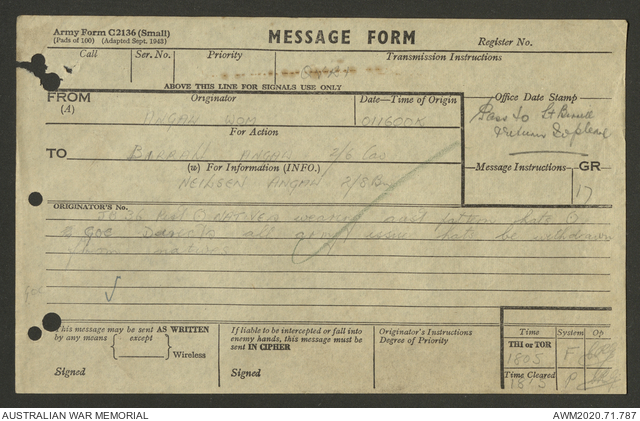 Army Form C2136 (Small)
(Pads of 100) (Adapted Sept. 1943)
MESSAGE FORM
Register No.
Call
Ser. No.
Priority
Transmission Instructions
ABOVE THIS LINE FOR SIGNALS USE ONLY
FROM
(A)
Originator
Date—Time of Origin
Office Date Stamp
ANGAU WOM
011600K
Pass to Lt
return
For Action
TO
BARRETT ANGAU 2/6 Cav
(W) For Information (INFO.)
Message Instructions
GR
NEILSEN ANGAU 2/8 Bn
17
ORIGINATOR'S No.
NATIVES wearing hats
GOC Directs all army issue hats be withdrawn
from natives
This message may be sent AS WRITTEN
by any means except
Wireless
Signed
If liable to be intercepted or fall into
enemy hands, this message must be
sent IN CIPHER
Signed
Originator's Instructions
Degree of Priority
Time
System
Op
THI or TOR
1805
F
Time Cleared
1815
P
AUSTRALIAN WAR MEMORIAL
AWM2020.71.787